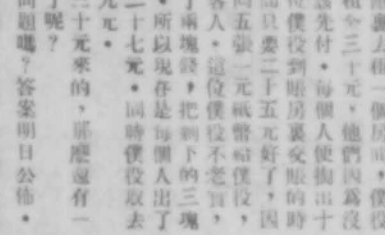 裏去租一個房間，僕役
租金三十元，他們因爲沒
先付。每個人便掏出十
位僕役到賬房裏交賬的時
出只要二十五元好了，因
回五張一元紙幣給僕役，
客人。這位僕役不老實，
了兩塊錢，把剩下的三塊
。所以現在是每個人出了
二十七元。同時僕役取去
元。
三十元來的，那麼還有一
了呢？
問題嗎？答案明日公佈。